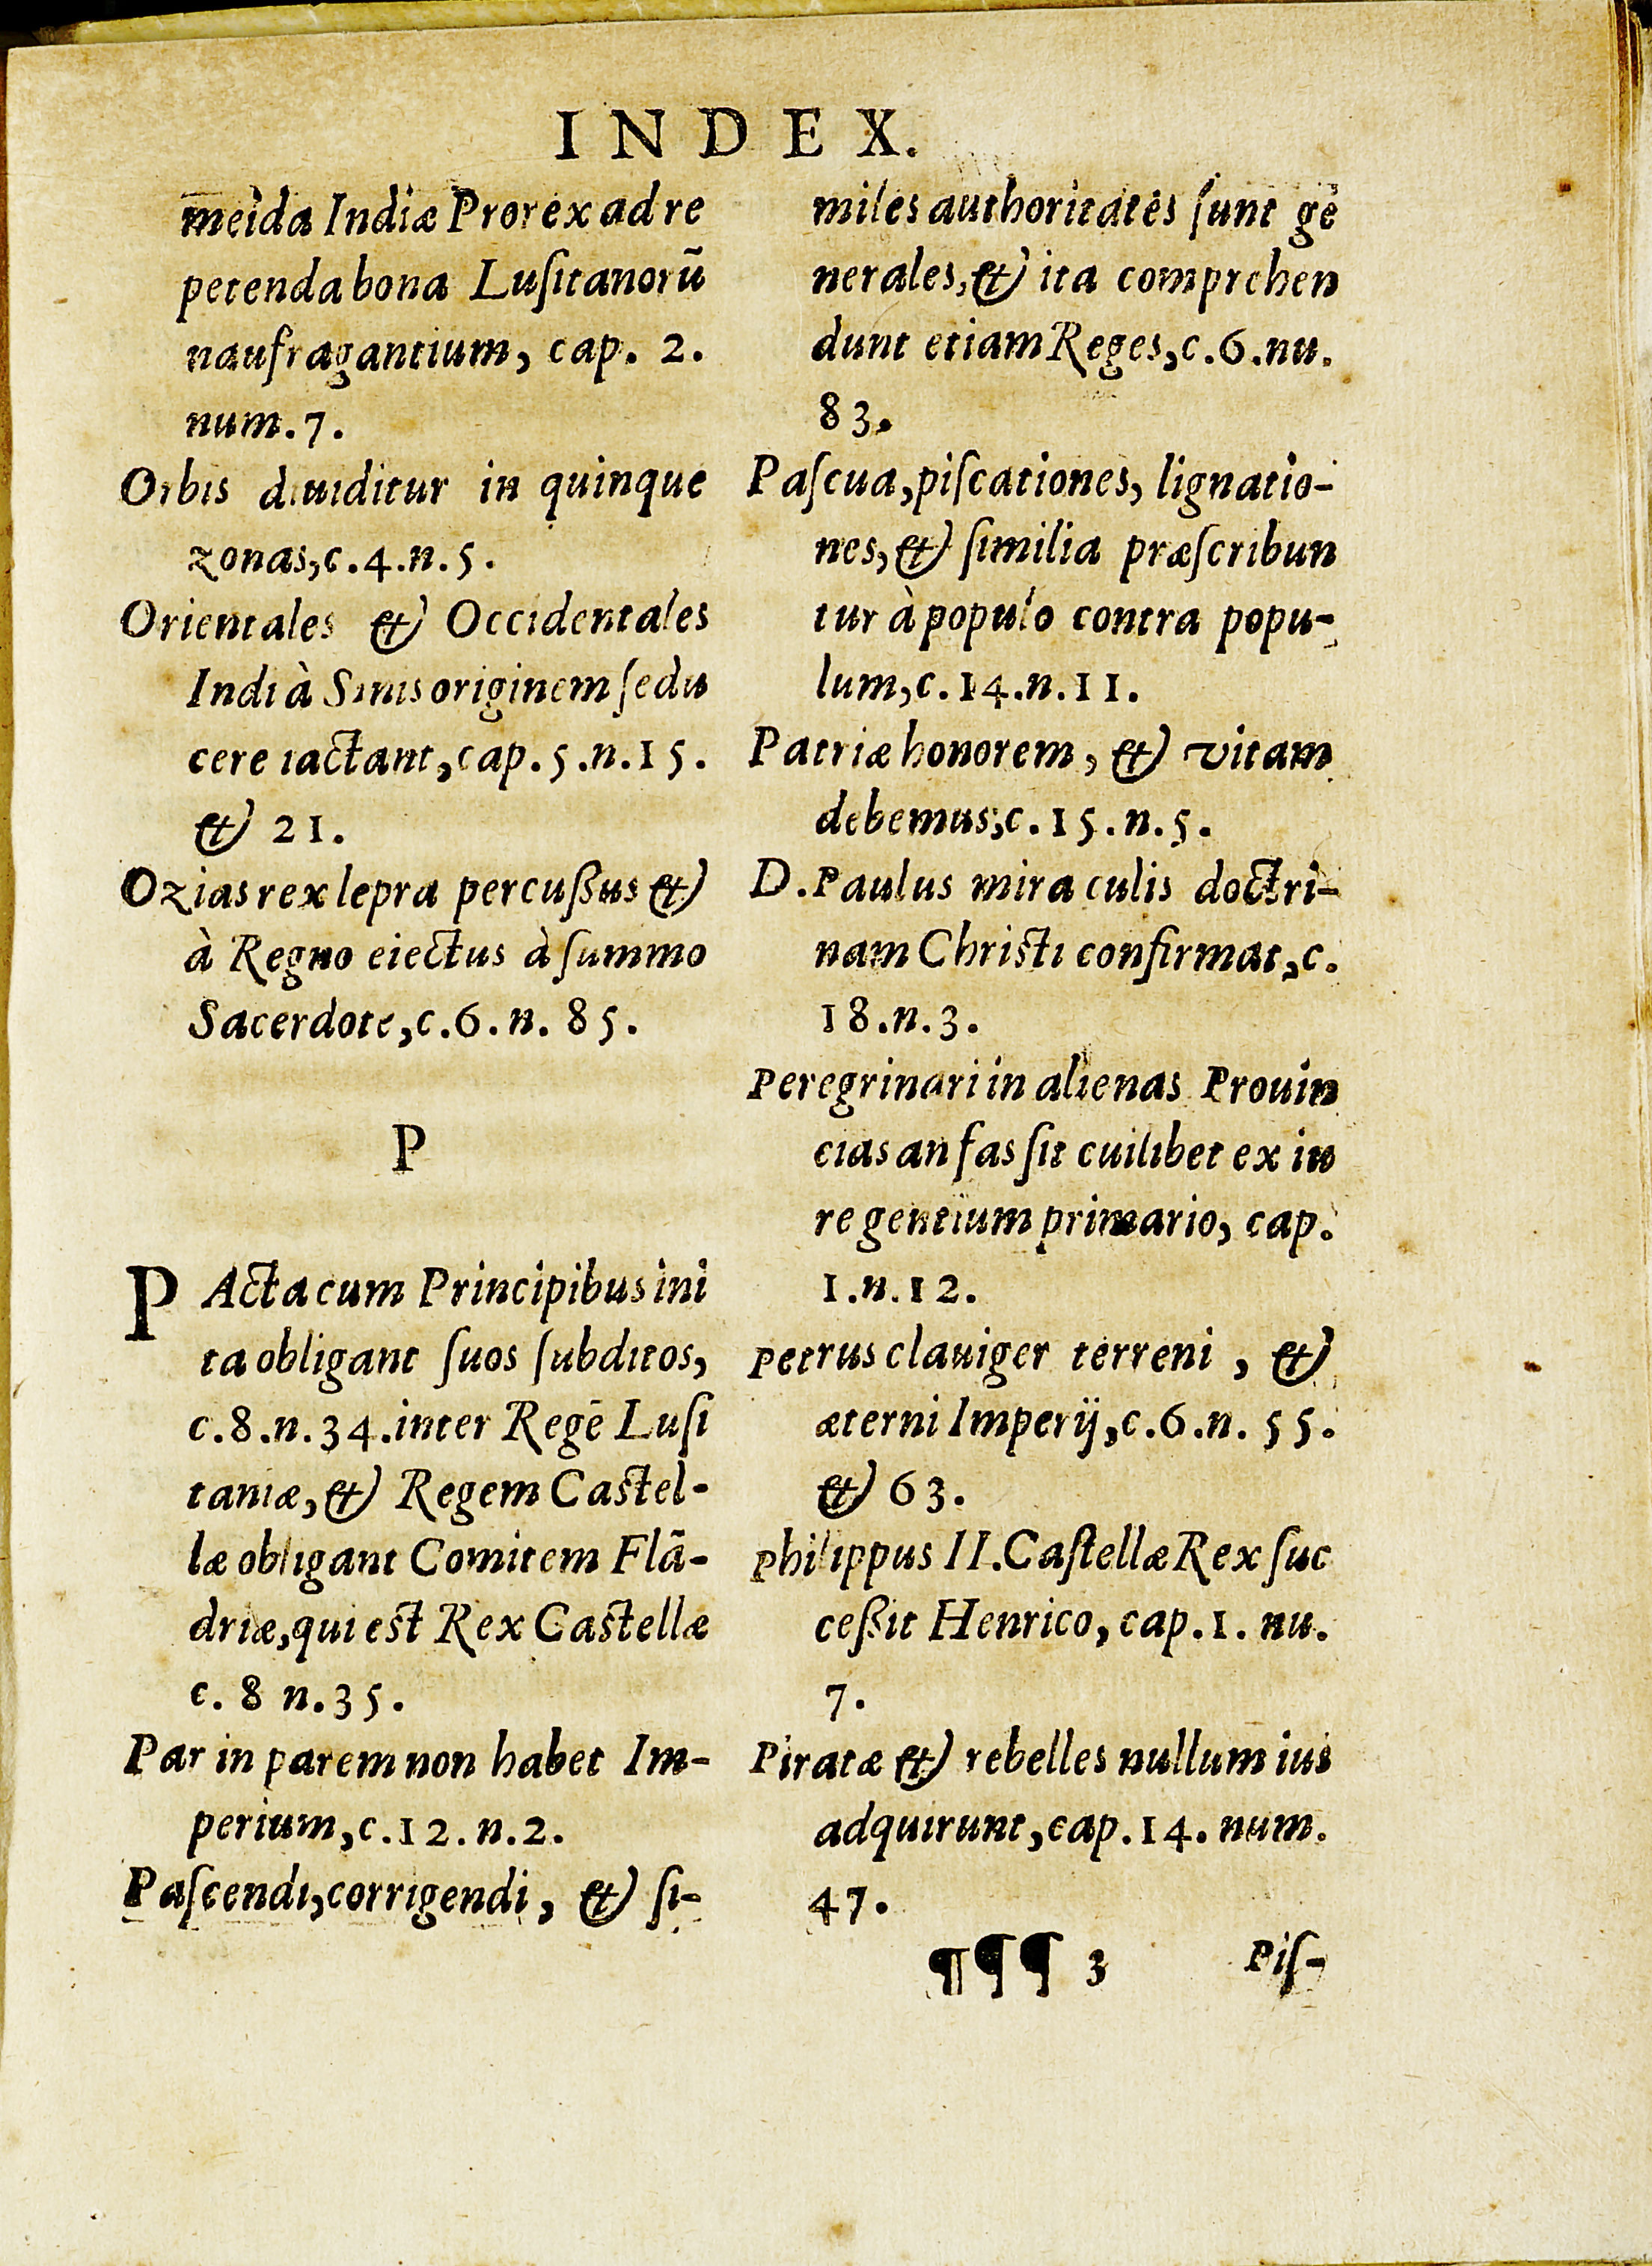 INDEX.
meida Indiæ Prorex ad re
petenda bona Luſitanorũ
naufragantium, cap. 2.
num. 7.
Orbis diuiditur in quinque
zonas, c. 4. n. 5.
Orientales & Occidentales
Indi à Sinis originem ſe du
cere iactant, cap. 5. n. 15.
& 21.
Ozias rex lepra percuſſus &
à Regno eiectus à ſummo
Sacerdote, c. 6. n. 85.
P
PActa cum Principibus ini
ta obligant ſuos ſubditos,
c. 8. n. 34. inter Regē Luſi
taniæ, & Regem Caſtel-
læ obligant Comitem Flã-
driæ, qui eſt Rex Caſtellæ
c. 8 n. 35.
Par in parem non habet Im-
perium, c. 12. n. 2.
Paſcendi, corrigendi, & ſi-
miles authoritates ſunt ge
nerales, & ita comprehen
dunt etiam Reges, c. 6. nu.
83.
Paſcua, piſcationes, lignatio-
nes, & ſimilia præſcribun
tur à populo contra popu-
lum, c. 14. n. 11.
Patriæ honorem, & vitam
debemus, c. 15. n. 5.
D. Paulus miraculis doctri-
nam Chriſti confirmat, c.
18. n. 3.
Peregrinari in alienas Prouin
cias an fas ſit cuilibet ex iu
re gentium primario, cap.
1. n. 12.
Petrus clauiger terreni, &
æterni Imperij, c. 6. n. 55.
& 63.
Philippus II. Caſtellæ Rex ſuc
ceſſit Henrico, cap. 1. nu.
7.
Piratæ & rebelles nullum ius
adquirunt, cap. 14. num.
47.
¶¶¶ 3 Piſ-